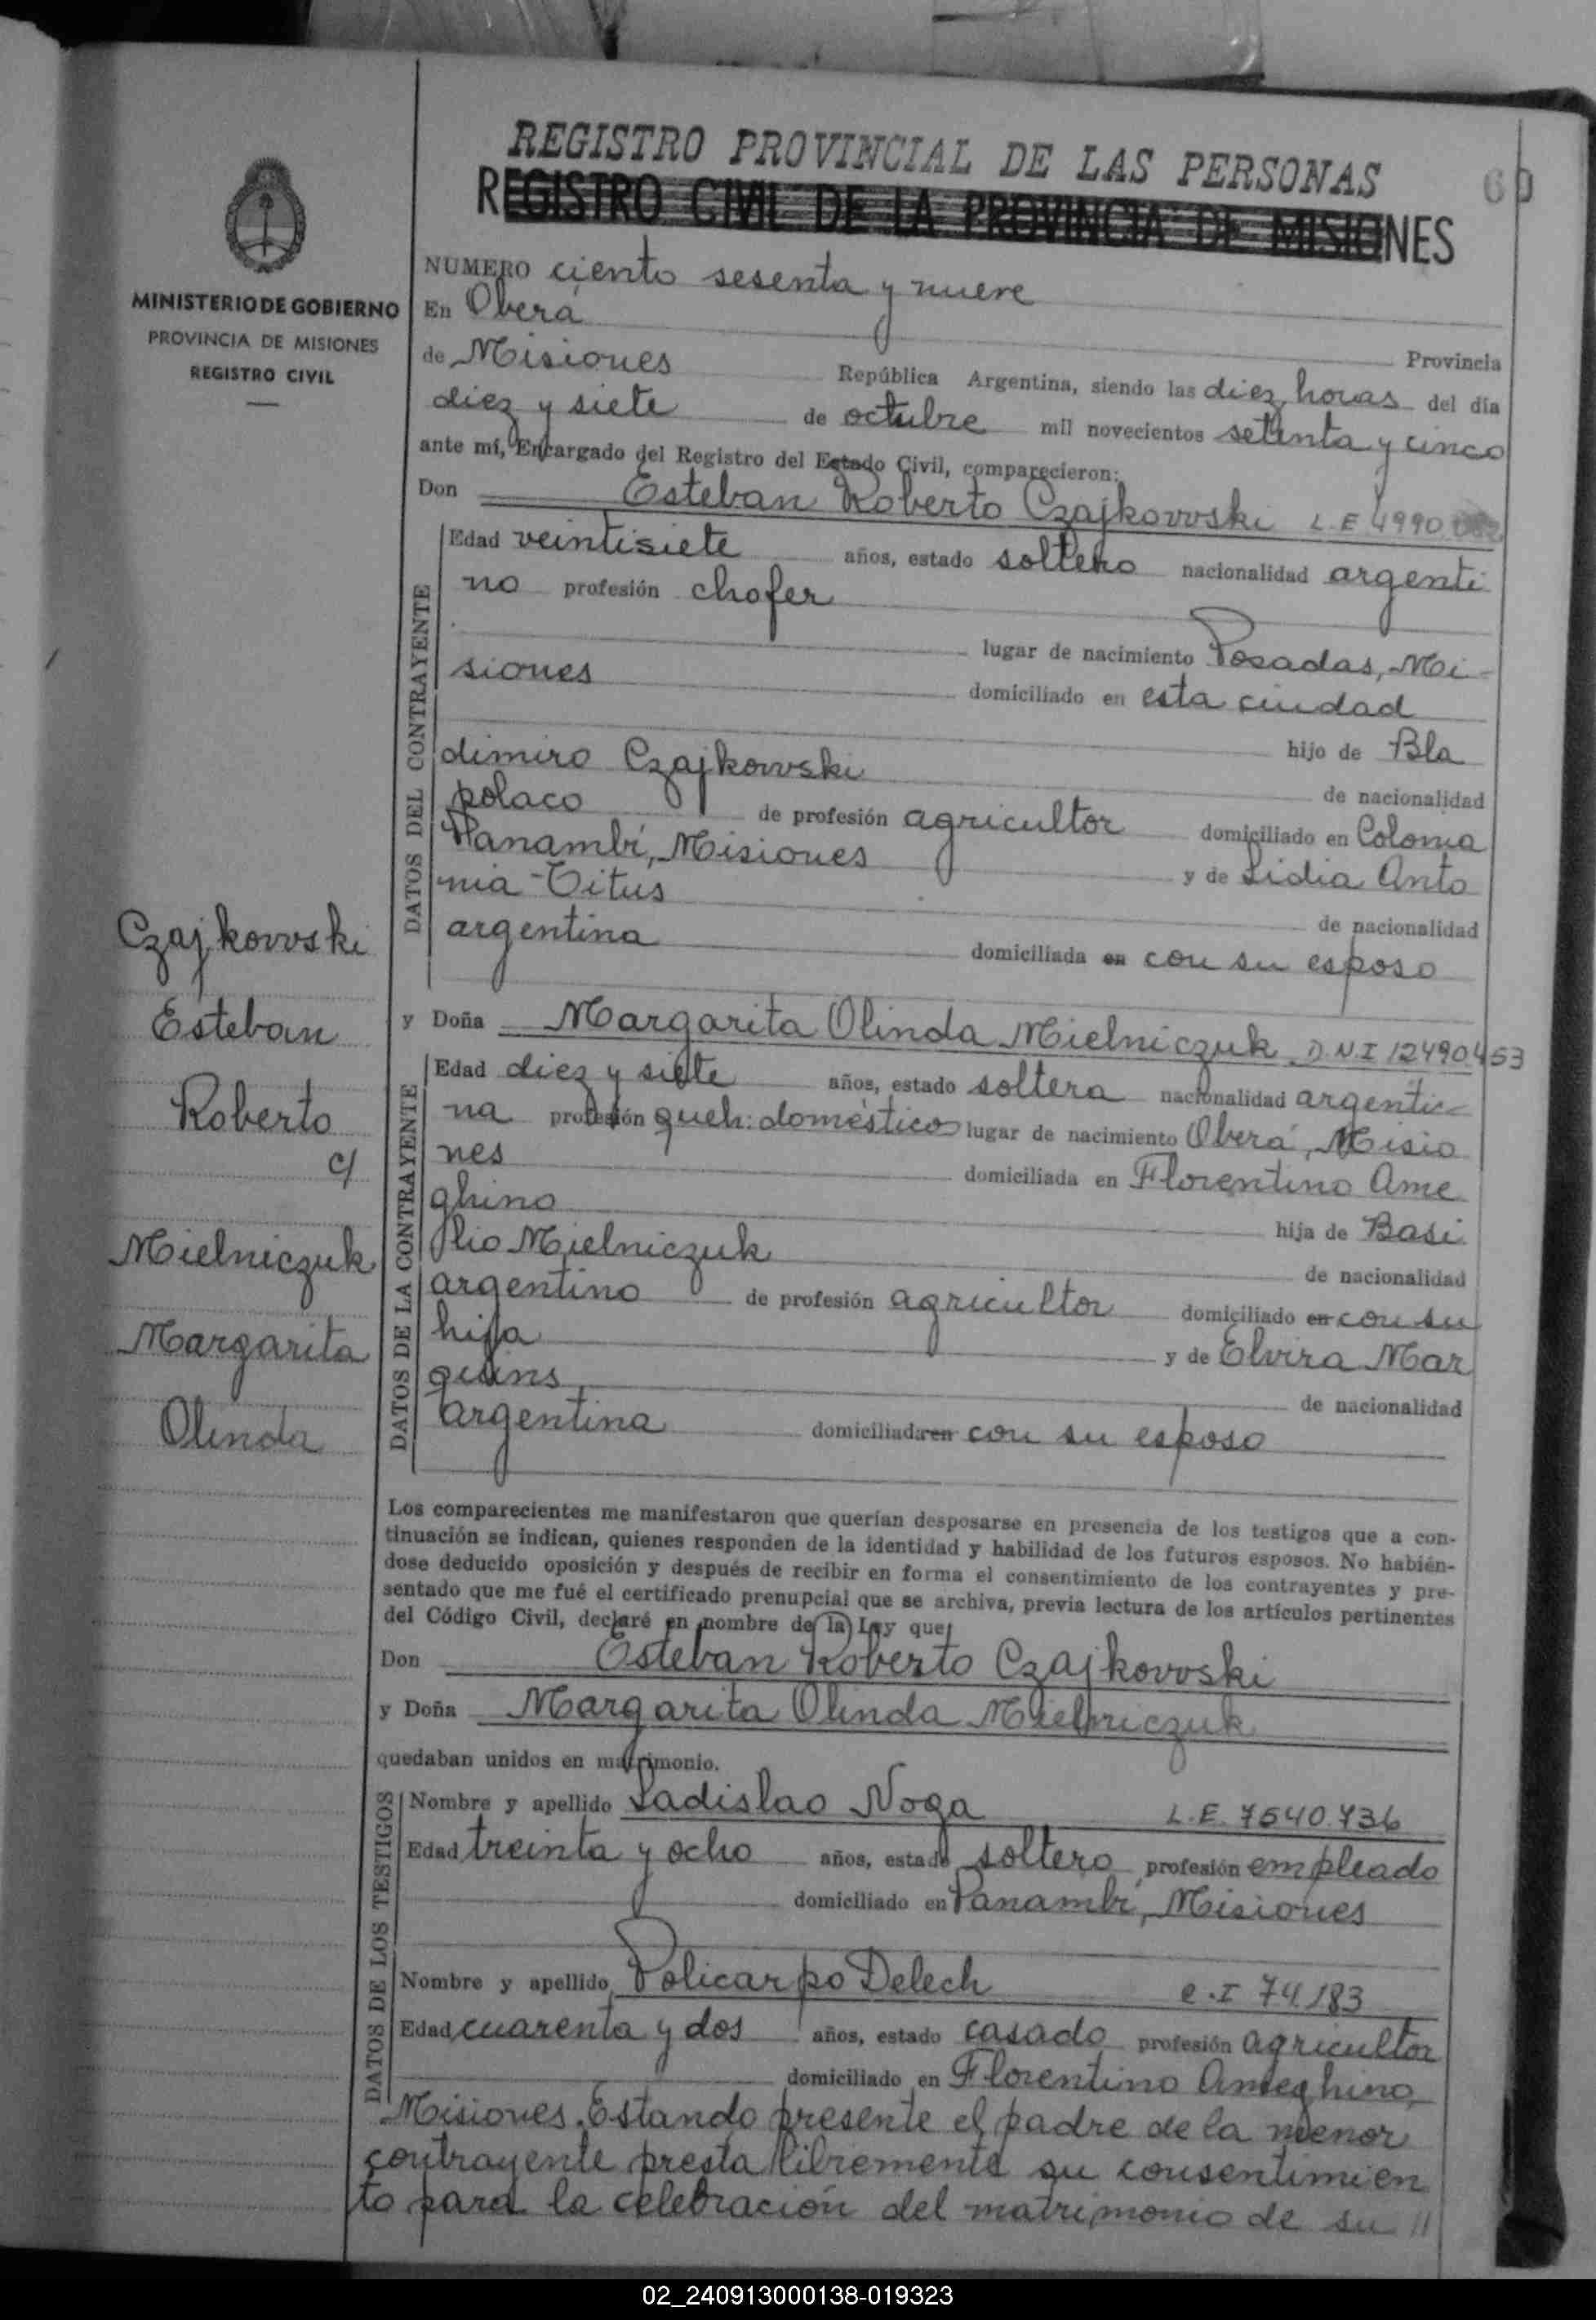 REGISTRO PROVINCIAL DE LAS PERSONAS
60
REGISTRO CIVIL DE LA PROVINCIA DE MISIONES
MINISTERIO DE GOBIERNO
PROVINCIA DE MISIONES
REGISTRO CIVIL
NUMERO ciento sesenta y nueve
En Oberá Provincia
de Misiones República Argentina, siendo las diez horas del día
diez y siete de octubre mil novecientos setenta y cinco
ante mí, Encargado del Registro del Estado Civil, comparecieron:
Don Esteban Roberto Czajkowski L.E 4990
DATOS DEL CONTRAYENTE
Edad veintisiete años, estado soltero nacionalidad argenti
no profesión chofer
lugar de nacimiento Posadas, Mi-
siones domiciliado en esta ciudad
hijo de Bla
dimiro Czajkowski de nacionalidad
polaco de profesión agricultor domiciliado en Colonia
Panambí, Misiones y de Lidia Anto
nia Titus de nacionalidad
argentina domiciliada en con su esposo
y Doña Margarita Olinda Mielniczuk D.N.I 12490.453
DATOS DE LA CONTRAYENTE
Edad diez y siete años, estado soltera nacionalidad argenti-
na profesión queh: domésticos lugar de nacimiento Oberá, Misio
nes domiciliada en Florentino Ame
ghino hija de Basi
lio Mielniczuk de nacionalidad
argentino de profesión agricultor domiciliado en con su
hija y de Elvira Mar
quins de nacionalidad
argentina domiciliada en con su esposo
Czajkowski
Esteban
Roberto
c/
Mielniczuk
Margarita
Olinda
Los comparecientes me manifestaron que querían desposarse en presencia de los testigos que a con-
tinuación se indican, quienes responden de la identidad y habilidad de los futuros esposos. No habién-
dose deducido oposición y después de recibir en forma el consentimiento de los contrayentes y pre-
sentado que me fué el certificado prenupcial que se archiva, previa lectura de los artículos pertinentes
del Código Civil, declaré en nombre de la Ley que
Don Esteban Roberto Czajkowski
y Doña Margarita Olinda Mielniczuk
quedaban unidos en matrimonio.
DATOS DE LOS TESTIGOS
Nombre y apellido Ladislao Noga L.E. 7540.736
Edad treinta y ocho años, estado soltero profesión empleado
domiciliado en Panambí, Misiones
Nombre y apellido Policarpo Delech C.I 74183
Edad cuarenta y dos años, estado casado profesión agricultor
domiciliado en Florentino Ameghino,
Misiones. Estando presente el padre de la menor
contrayente presta libremente su consentimien
to para la celebración del matrimonio de su //
02_240913000138-019323